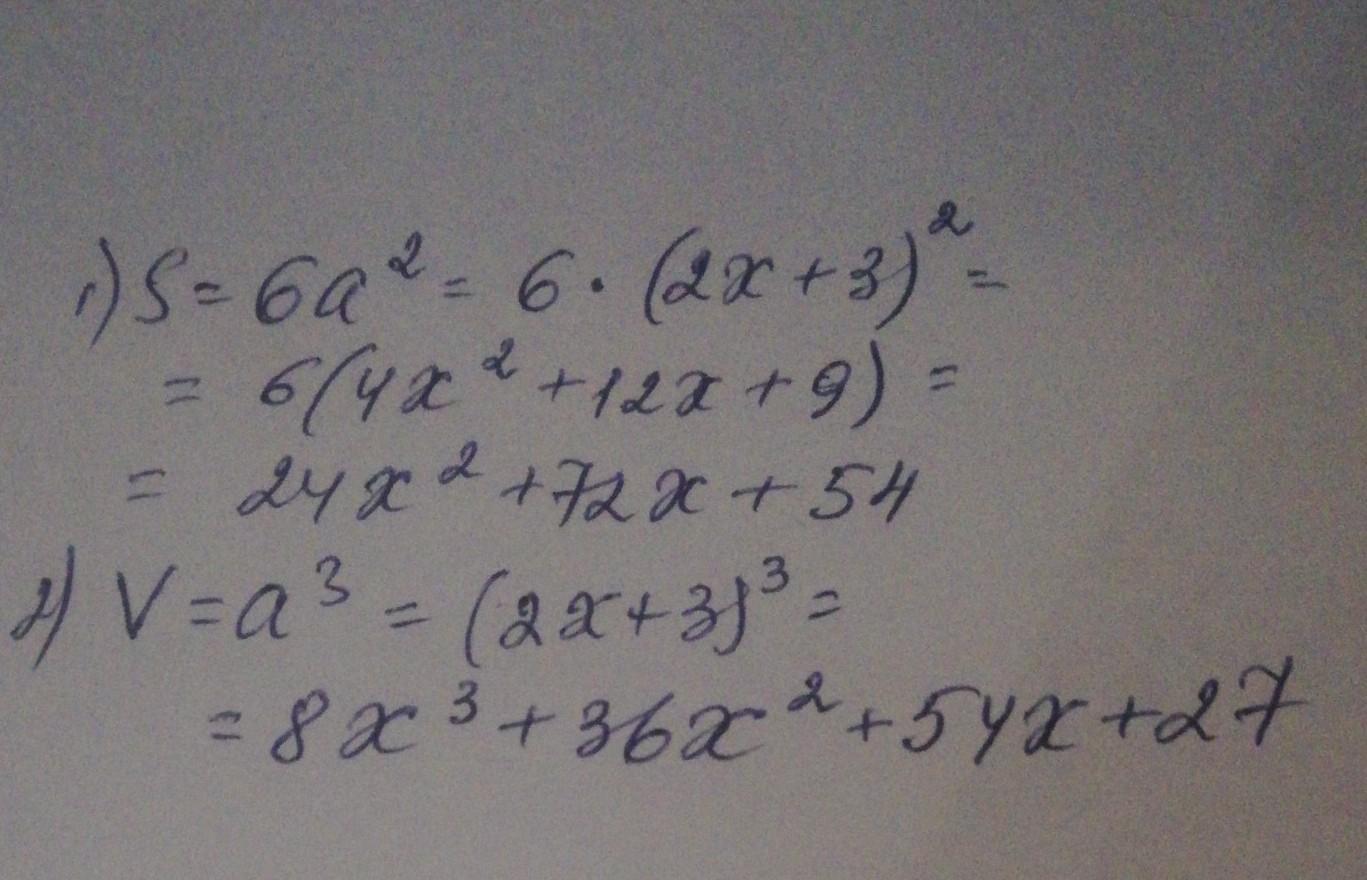 1) S = 6a² = 6 · (2x + 3)² =
= 6(4x² + 12x + 9) =
= 24x² + 72x + 54
2) V = a³ = (2x + 3)³ =
= 8x³ + 36x² + 54x + 27